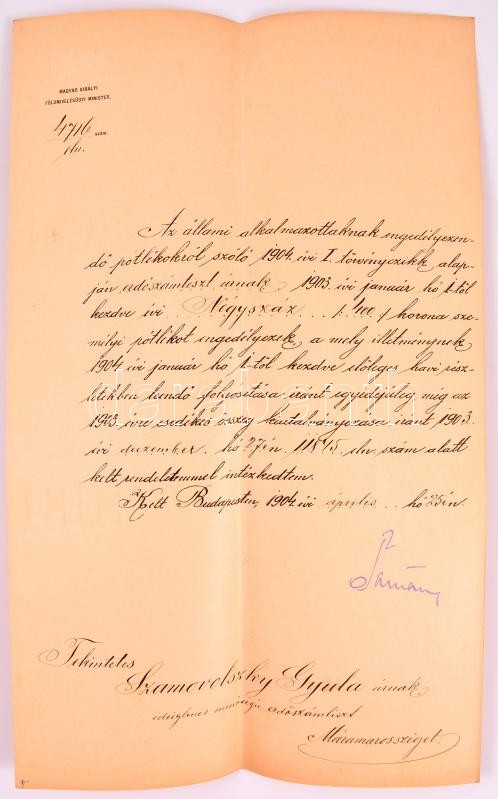 MAGYAR KIRÁLYI
FÖLDMIVELÉSÜGYI MINISTER.
4716 szám.
eln.
Az állami alkalmazottaknak engedélyezen-
dő pótlékokról szóló 1904. évi I. törvényczikk alap-
ján erdőszámtiszt úrnak, 1903. évi január hó 1-től
kezdve évi Négyszáz /: 400 :/ korona sze-
mélyi pótlékot engedélyezek, a mely illetménynek
1904. évi január hó 1-től kezdve előleges havi rész-
letekben leendő folyósitása iránt egyidejüleg, mig az
1903. évre esedékes összeg kiutalványozása iránt 1903.
évi deczember hó 27én 11845. eln. szám alatt
kelt rendeletemmel intézkedtem.
Kelt Budapesten, 1904. évi április hó 25én.
darabanth
Tekintetes
Szamovolszky Gyula úrnak,
ideiglenes minőségü erdőszámtiszt
Máramarossziget.